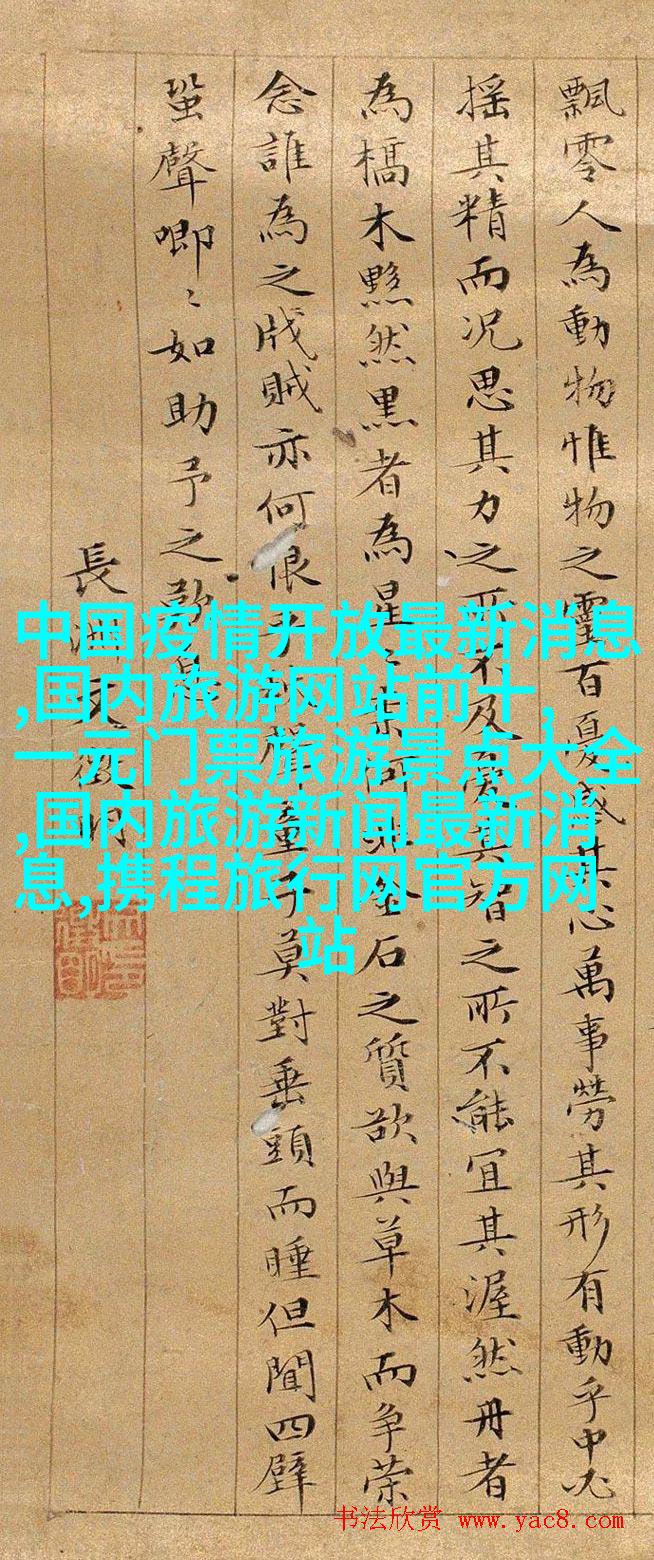 飄零人為動物惟物之靈百憂感其心萬事勞其形有動乎中必
搖其精而況思其力之所不及憂其智之所不能宜其渥然丹者
為槁木黟然黒者為星〻奈何非金石之質欲與草木而争荣
念誰為之戕賊亦何恨乎秋聲童子莫對垂頭而睡但聞四壁
蛩聲唧〻如助予之歎息
長洲文徵明
中国疫情开放最新消息
,国内旅游网站前十,
一元门票旅游景点大全
,国内旅游新闻最新消
息,携程旅行网官方网
站
书法欣赏 www.yac8.com